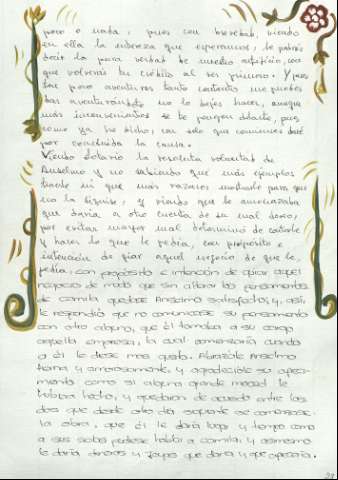 poco o nada; pues con brevedad, viendo
en ella la entereza que esperamos, le podrás
decir la pura verdad de nuestro artificio, con
que volverá tu crédito al ser primero. Y pues
tan poco aventuras y tanto contento me puedes
dar aventurándote no lo dejes hacer, aunque
más inconvenientes se te pongan delante, pues
como ya he dicho, con solo que comiences daré
por concluida la causa.
Viendo Lotario la resoluta voluntad de
Anselmo y no sabiendo que más ejemplos
traerle ni que más razones mostrarle para que
no la siguiese, y viendo que le amenazaba
que daría a otro cuenta de su mal deseo,
por evitar mayor mal determinó de contentarle
y hacer lo que le pedía, con propósito e
intención de guiar aquel negocio de que le
pedía, con propósito e intención de guiar aquel
negocio de modo que sin alterar los pensamientos
de Camila quedase Anselmo satisfecho; y, así,
le respondió que no comunicase su pensamiento
con otro alguno, que él tomaba a su cargo
aquella empresa, la cual comenzaría cuando
a él le diese más gusto. Abrazóle Anselmo
tierna y amorosamente, y agradecióle su ofreci-
miento como si alguna grande merced le
hubiera hecho, y quedaron de acuerdo entre los
dos que desde otro día siguiente se comenzase
la obra, que él le daría lugar y tiempo como
a sus solas pudiese hablar a Camila, y asimismo
le daría dineros y joyas que darla y que ofrecerla.